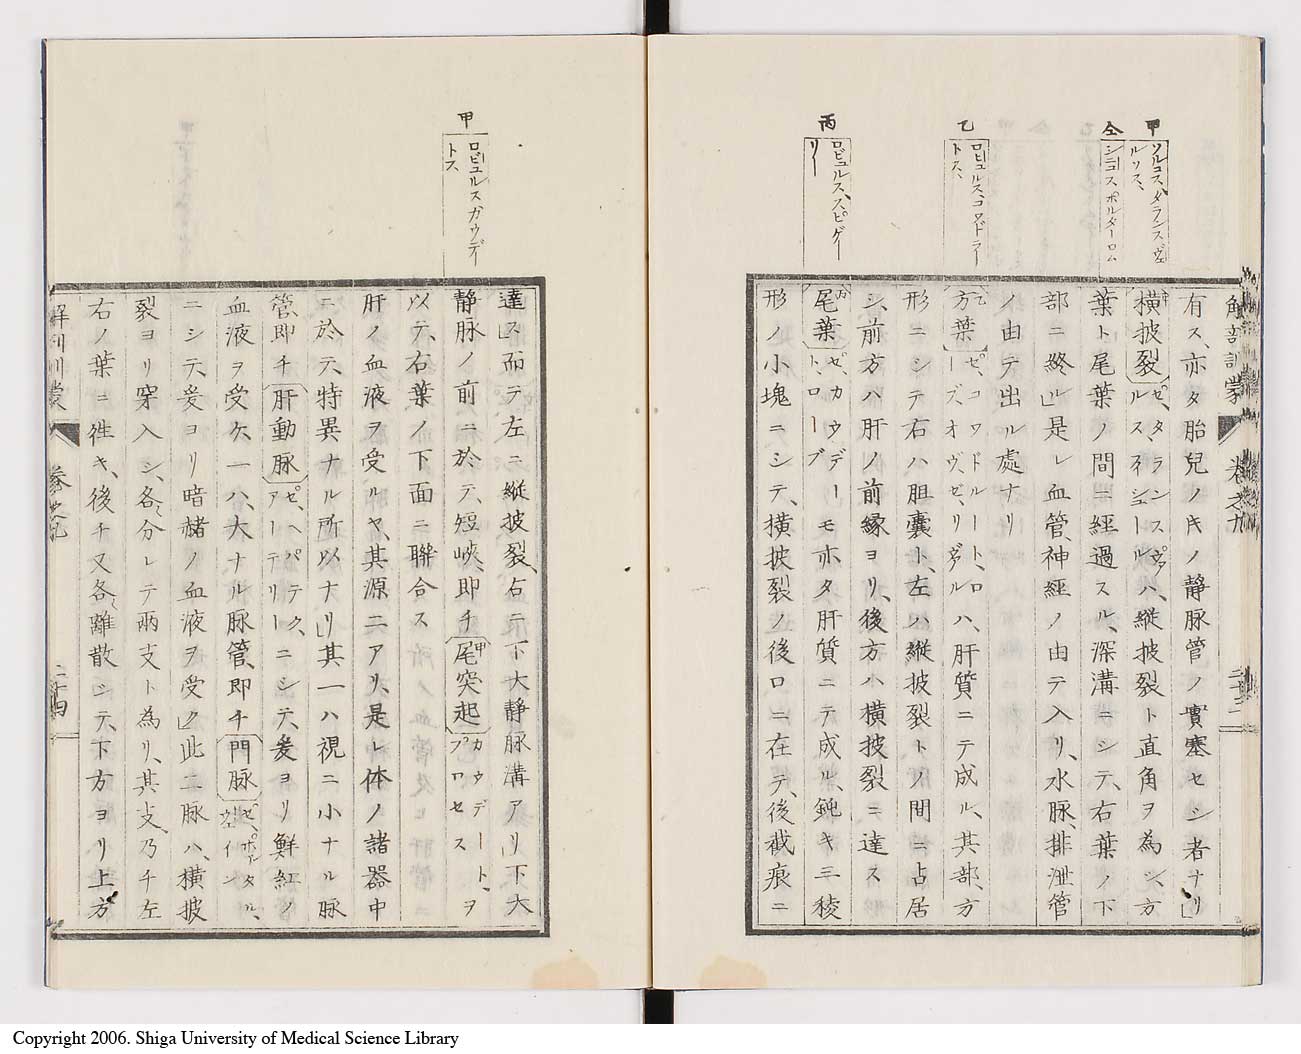 甲
ソルコス、タランスヱ
ルソス、
仝
シニュスポルターロム
乙
ロビュルス、コワドラー
トス、
丙
ロビュルス、スピゲー
リー
解剖訓蒙 卷之九 二十三
有ス、亦タ胎兒ノキノ靜脉管ノ實塞セシ者ナリ」
甲横披裂ゼ、タ、ランスヴァルス、フィシュールハ、縦披裂ト直角ヲ為シ、方
葉ト尾葉ノ間ニ經過スル、深溝ニシテ、右葉ノ下
部ニ終ル」是レ血管、神經ノ由テ入リ、水脉、排泄管
ノ由テ出ル處ナリ
乙方葉ゼ、コワドルート、ローブ、オヴ、ゼ、リヴァルハ、肝質ニテ成ル、其部、方
形ニシテ右ハ胆囊ト、左ハ縦披裂トノ間ニ占居
シ、前方ハ肝ノ前縁ヨリ、後方ハ横披裂ニ達ス
丙尾葉ゼ、カウデート、ローブモ亦タ肝質ニテ成ル、鈍キ三稜
形ノ小塊ニシテ、横披裂ノ後口ニ在テ、後截痕ニ
甲
ロビュルスカウデー
トス
達ス」而テ左ニ縦披裂、右ニ下大静脉溝アリ」下大
静脉ノ前ニ於テ、短峽、即チ甲尾突起カウデート、プロセスヲ
以テ、右葉ノ下面ニ聯合ス
肝ノ血液ヲ受ルヤ、其源二アリ、是レ体ノ諸器中
ニ於テ、特異ナル所以ナリ」其一ハ視ニ小ナル脉
管即チ肝動脉ゼ、ヘパテク、アーテリーニシテ、爰ヨリ鮮紅ノ
血液ヲ受ケ、一ハ、大ナル脉管、即チ門脉ゼ、ポルタル、ヱイン
ニシテ、爰ヨリ暗赭ノ血液ヲ受ク」此二脉ハ、横披
裂ヨリ穿入シ、各〻分レテ兩支ト為リ、其支、乃チ左
右ノ葉ニ徃キ、後チ又各〻離散シテ、下方ヨリ上方
解剖訓蒙 卷之九 二十四
Copyright 2006. Shiga University of Medical Science Library